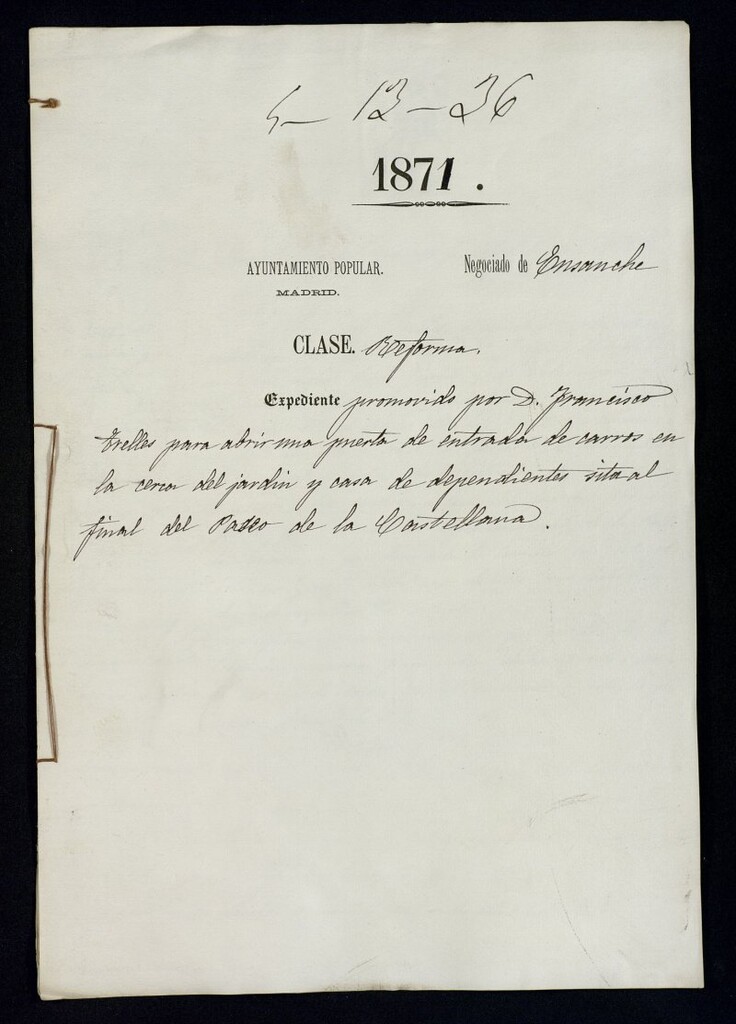 5 - 13 - 36
1871.
AYUNTAMIENTO POPULAR.
MADRID.
Negociado de Ensanche
CLASE. Reforma.
Expediente promovido por D. Francisco
Trelles para abrir una puerta de entrada de carros en
la cerca del jardin y casa de dependientes sita al
final del Paseo de la Castellana.